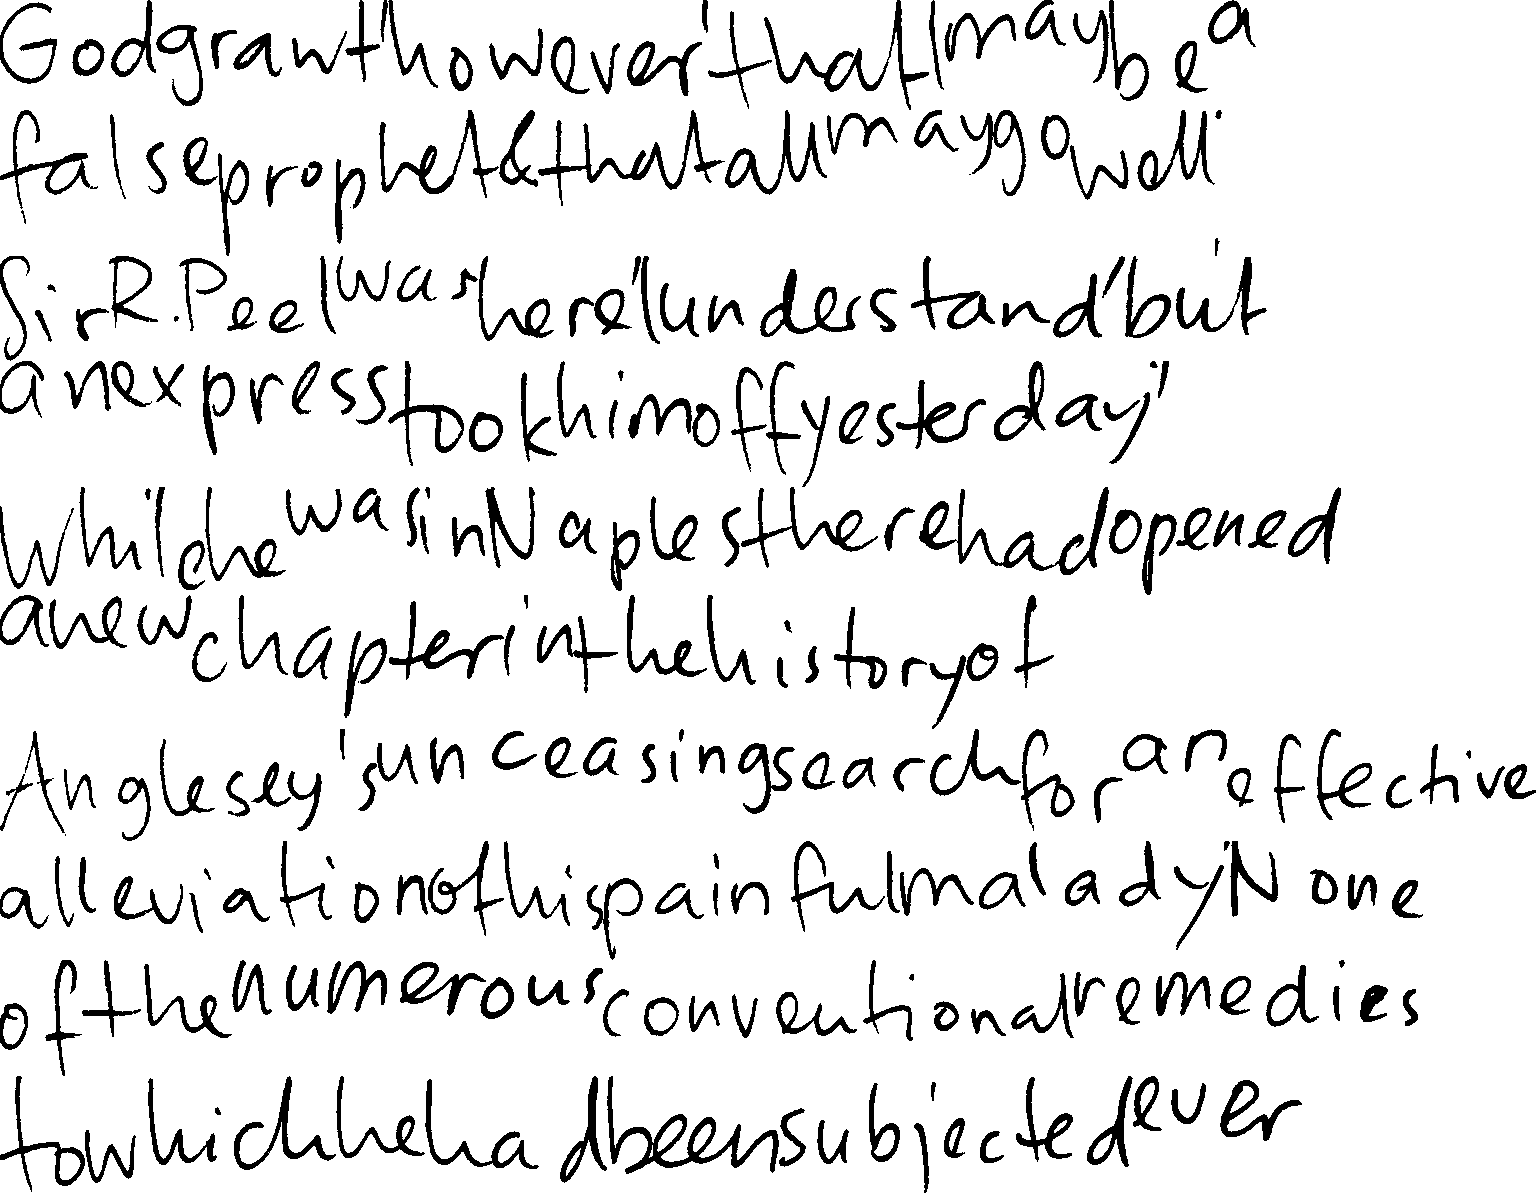 God grant however that I may be a
false prophet & that all may go well.
Sir R. Peel was here I understand but
an express took him off yesterday'
While he was in Naples there had opened
a new chapter in the history of
Anglesey's unceasing search for an effective
alleviation of his painful malady. None
of the numerous conventional remedies
to which he had been subjected ever